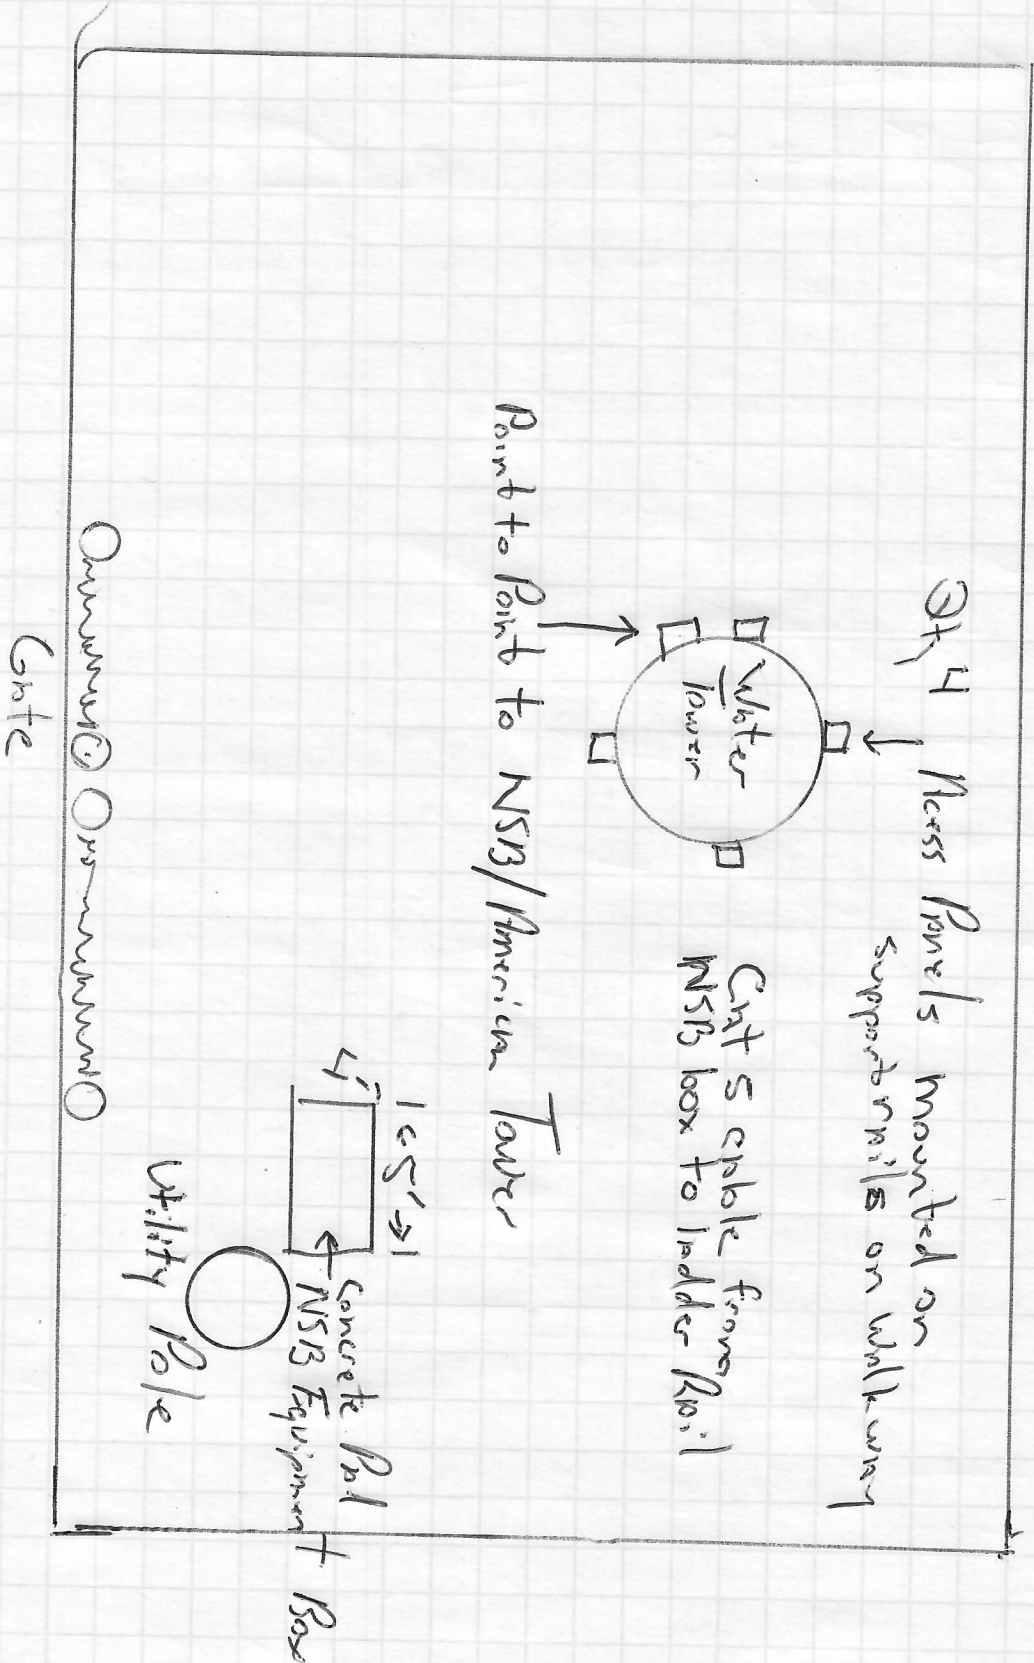 Qty 4 Access Panels mounted on
support rails on walkway
Water
Tower
Cat 5 cable from
NSB box to ladder Rail
Point to Point to NSB/American Tower
1←5'→1
4'
Concrete Pad
NSB Equipment Box
Utility Pole
Gate